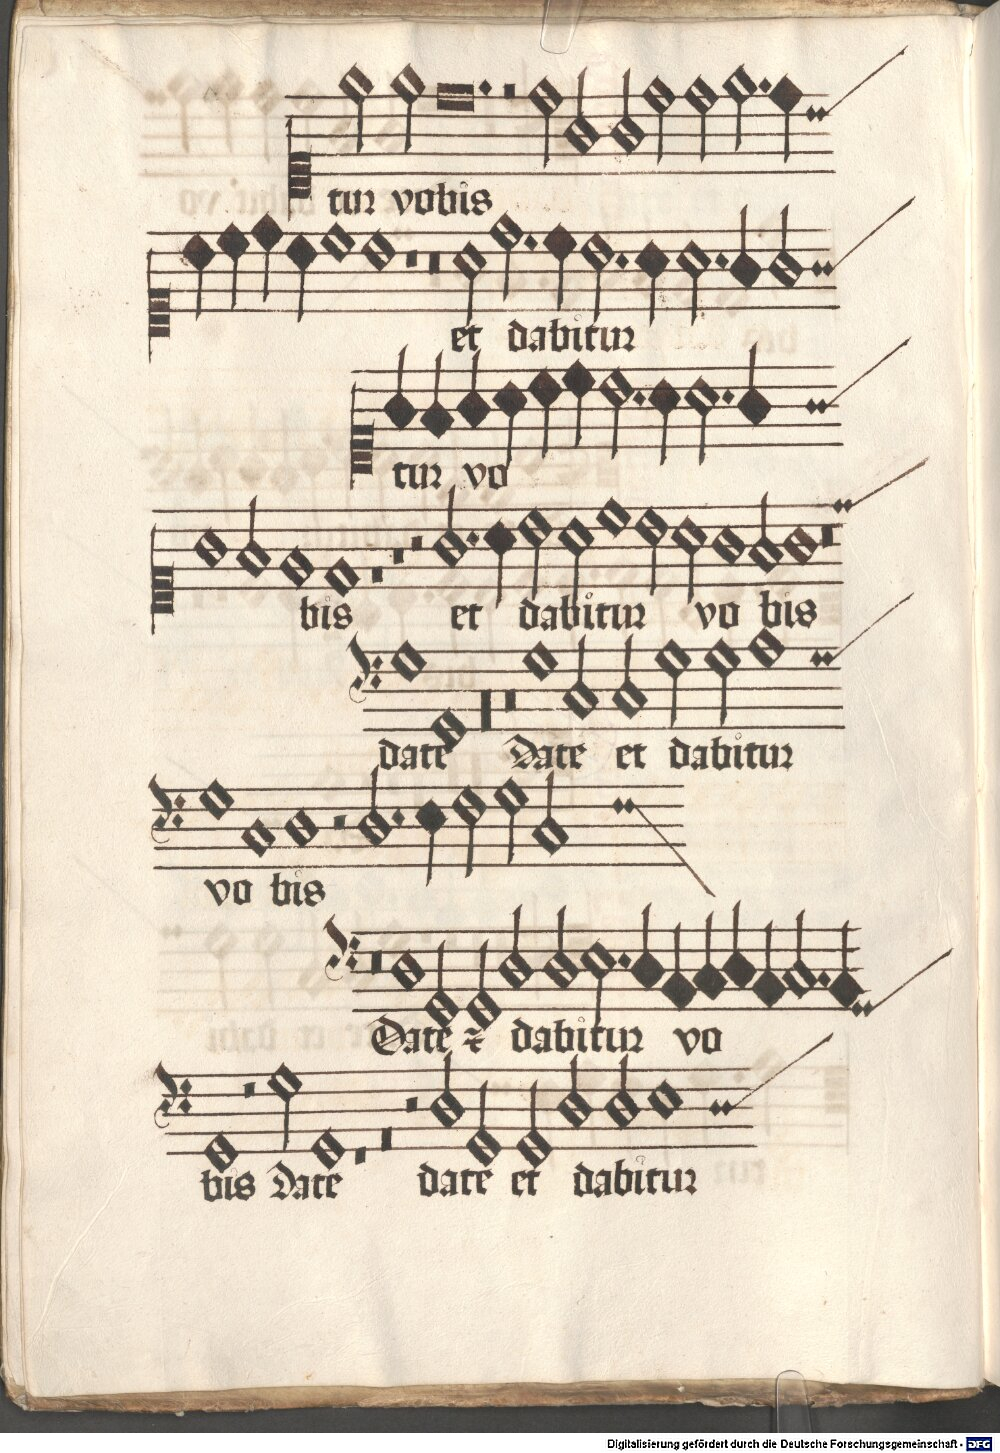 tur vobis
et dabitur
tur vo
bis et dabitur vo bis
date Date et dabitur
vo bis
Date & dabitur vo
bis Date date et dabitur
Digitalisierung gefördert durch die Deutsche Forschungsgemeinschaft - DFG